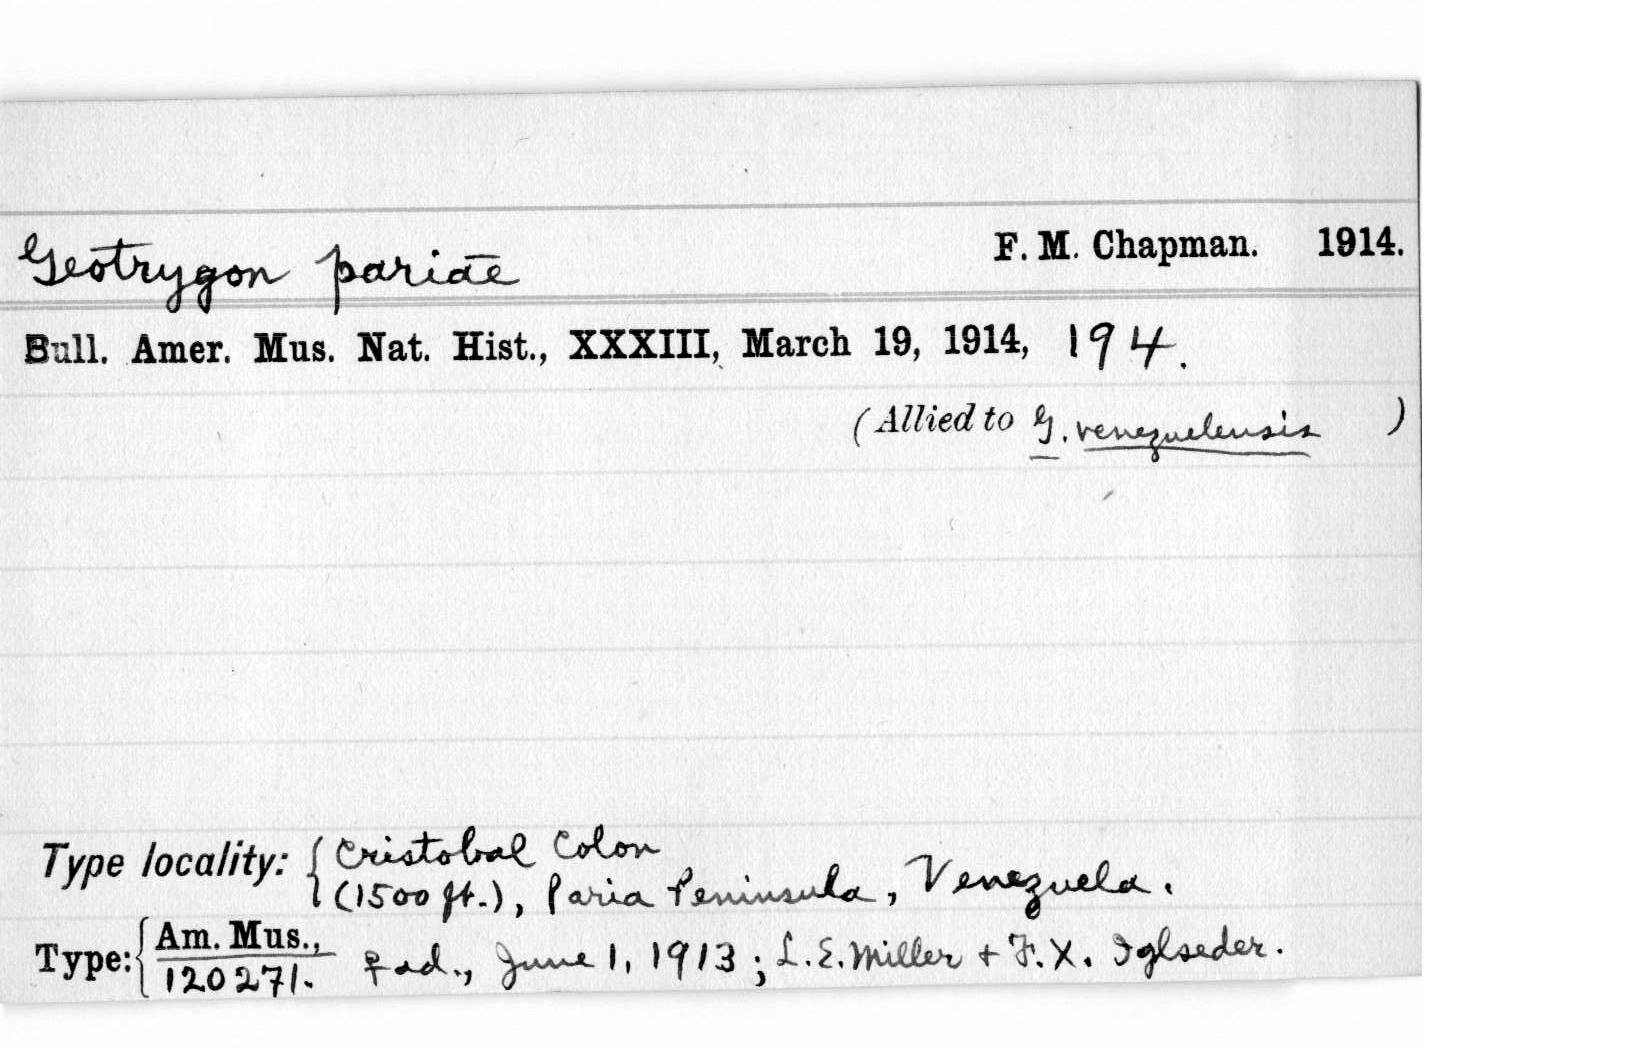 Geotrygon pariae F. M. Chapman. 1914.
Bull. Amer. Mus. Nat. Hist., XXXIII, March 19, 1914, 194.
(Allied to G. venezuelensis )
Type locality: { Cristobal Colon
(1500 ft.), Paria Peninsula, Venezuela.
Type: { Am. Mus., ♀ ad., June 1, 1913; L. E. Miller + F. X. Iglseder.
120271.